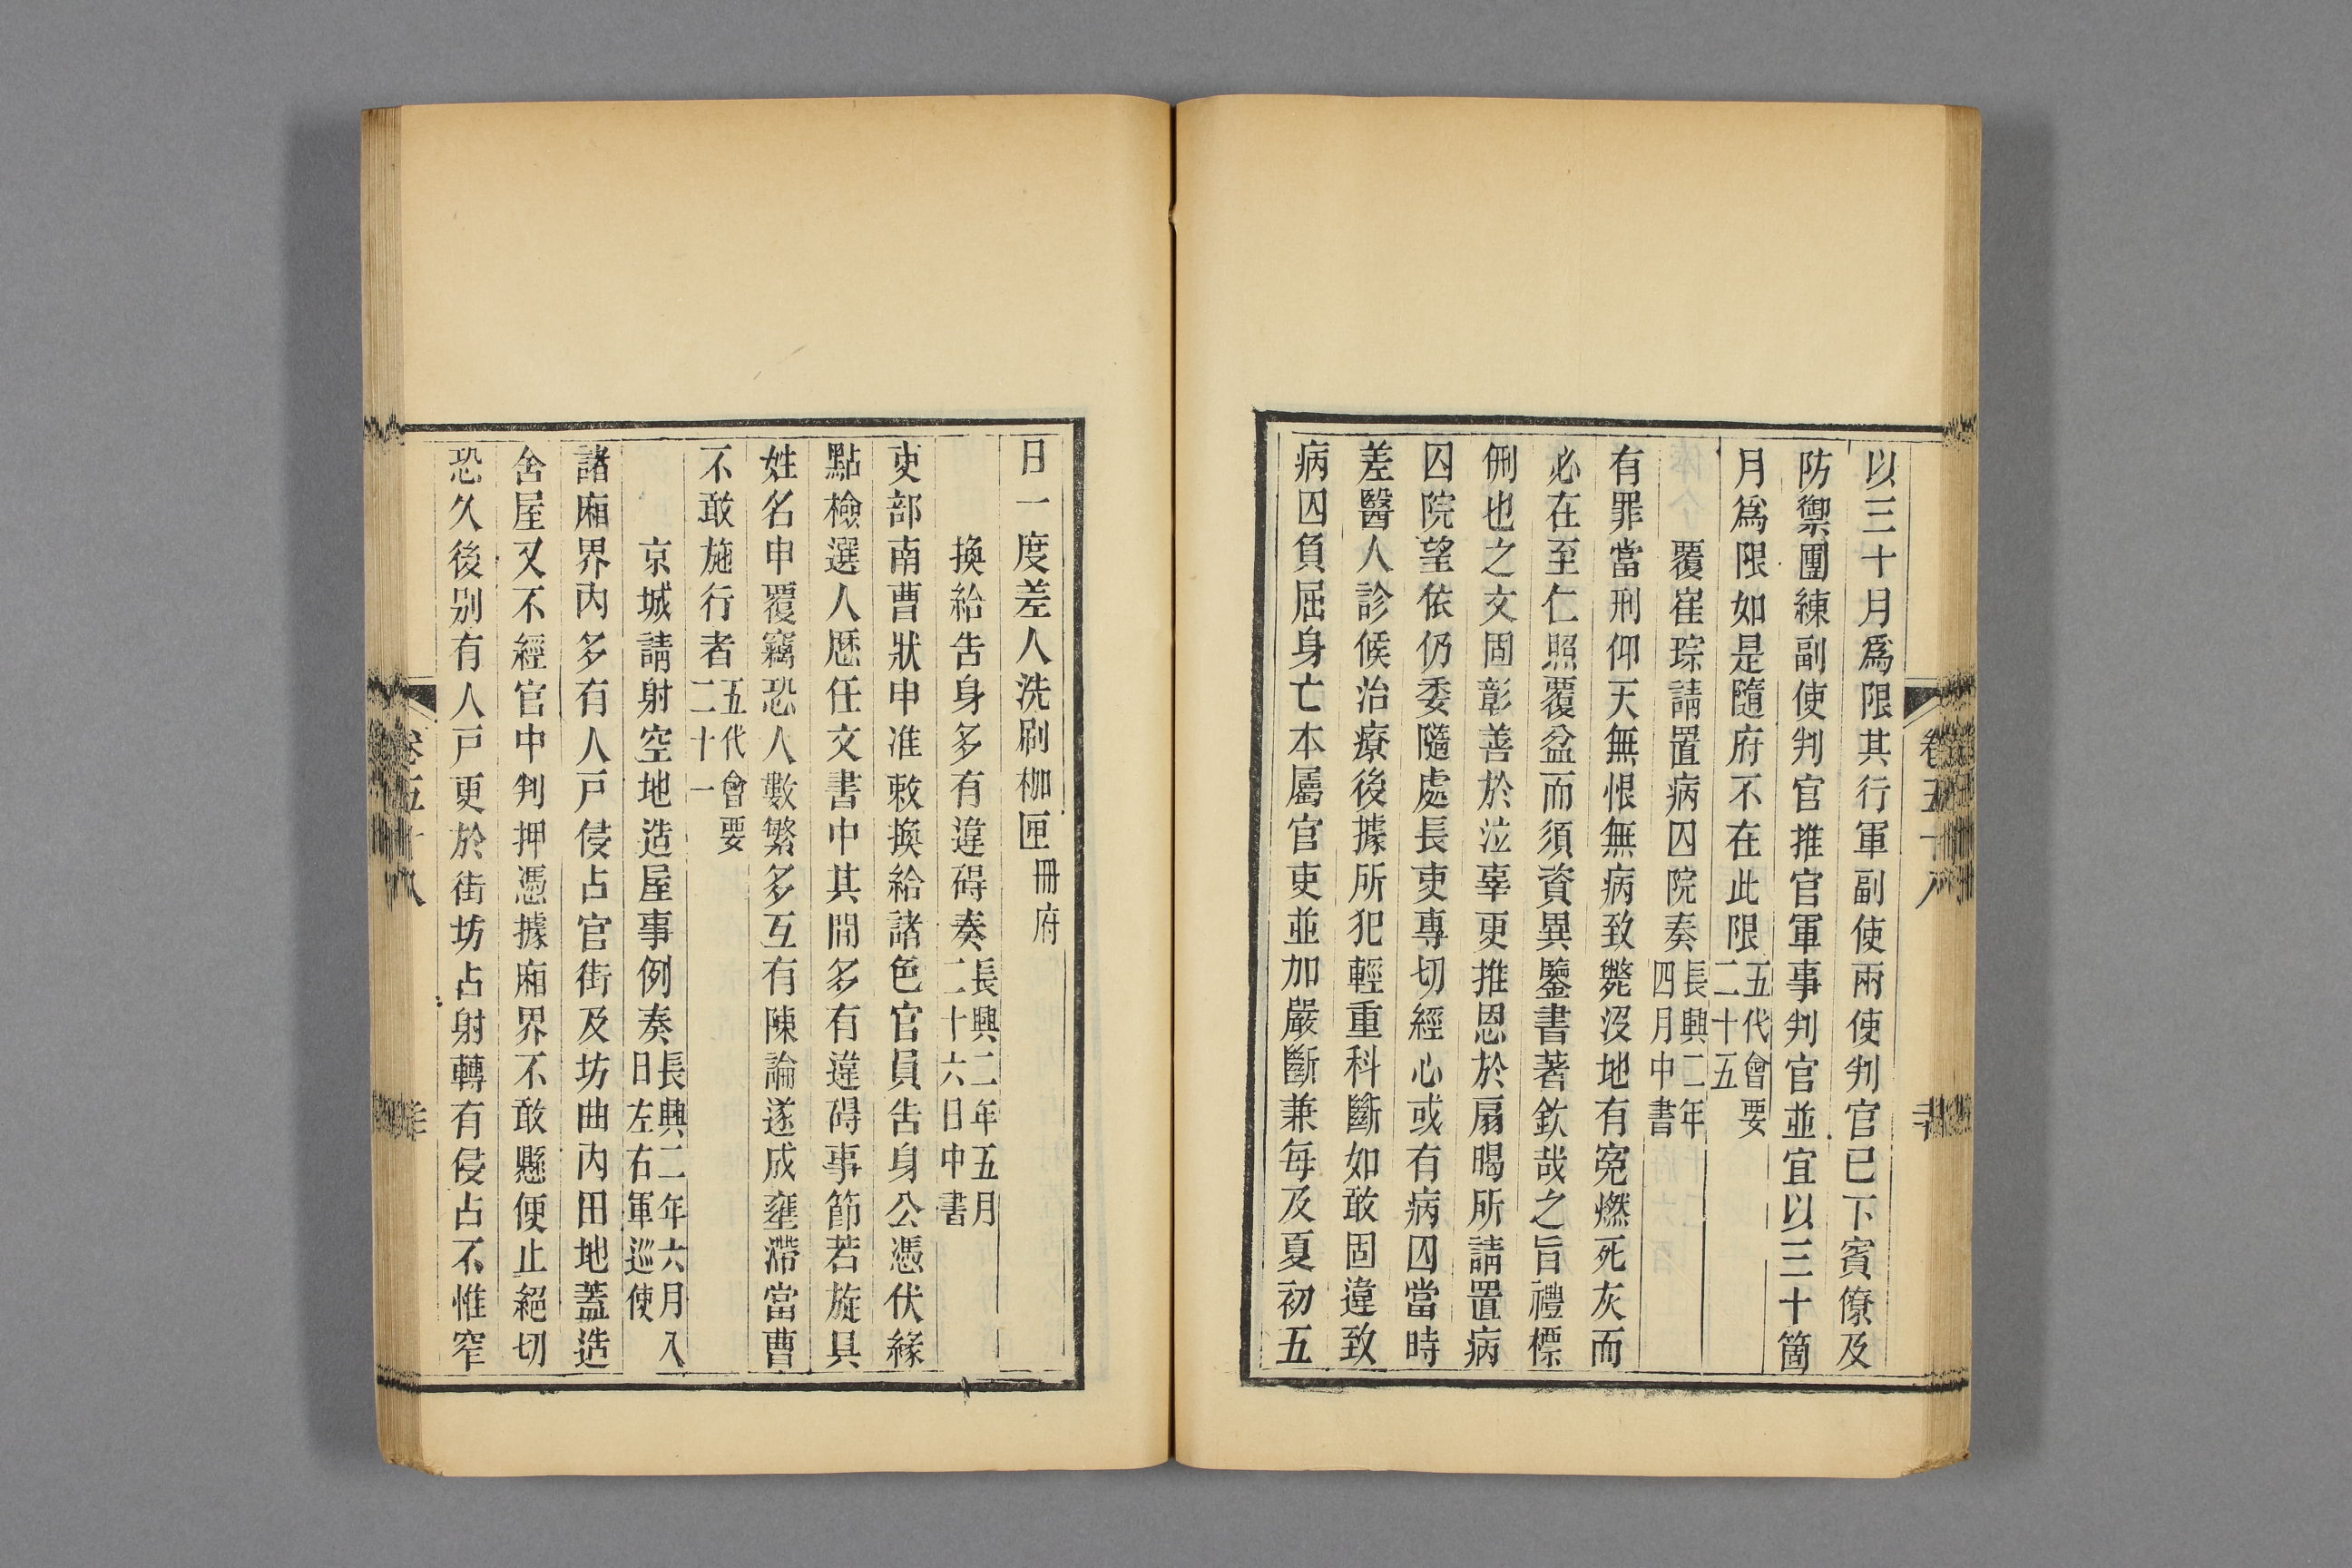 以三十月爲限其行軍副使兩使判官已下賓僚及
防禦團練副使判官推官軍事判官並宜以三十箇
月爲限如是隨府不在此限五代會要二十五
覆崔琮請置病囚院奏長興二年四月中書
有罪當刑仰天無恨無病致斃沒地有寃燃死灰而
必在至仁照覆盆而須資異鑒書著欽哉之旨禮標
侀也之文固彰善於泣辜更推恩於扇暍所請置病
囚院望依仍委隨處長吏專切經心或有病囚當時
差醫人診候治療後據所犯輕重科斷如敢固違致
病囚負屈身亡本屬官吏並加嚴斷兼每及夏初五
日一度差人洗刷枷匣冊府
換給告身多有違碍奏長興二年五月二十六日中書
吏部南曹狀申准敕換給諸色官員告身公憑伏緣
點檢選人歷任文書中其間多有違碍事節若旋具
姓名申覆竊恐人數繁多互有陳論遂成壅滯當曹
不敢施行者五代會要二十一
京城請射空地造屋事例奏長興二年六月八日左右軍巡使
諸廂界內多有人戸侵占官街及坊曲內田地蓋造
舍屋又不經官中判押憑據廂界不敢懸便止絕切
恐久後別有人戸更於街坊占射轉有侵占不惟窄
卷五十八